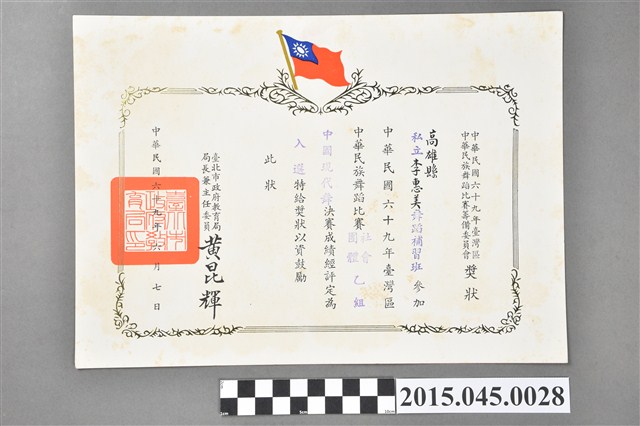 中華民國六十九年臺灣區
中華民族舞蹈比賽籌備委員會
獎狀
高雄縣
私立李惠美舞蹈補習班參加
中華民國六十九年臺灣區
中華民族舞蹈比賽
社會
團體
乙組
中國現代舞決賽成績經評定為
入選特給獎狀以資鼓勵
此狀
臺北市政府教育局
局長兼主任委員
黃昆輝
中華民國六十九年六月七日
2015.045.0028